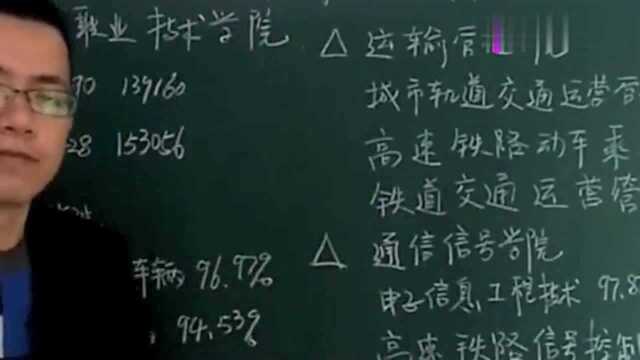 职业技术学院
90 139160
28 153056
车辆 96.97%
94.53%
△ 运输管
城市轨道交通运营管
高速铁路动车乘
铁道交通运营管
△ 通信信号学院
电子信息工程技术 97.8
高速铁路信号控制